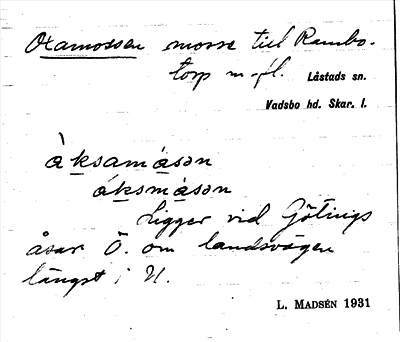 Oxamossen mosse till Rambo-
torp m. fl. Låstads sn.
Vadsbo hd. Skar. l.
àksamåsən
áksmåsən
Ligger vid Götings
åsar Ö. om landsvägen
längst i N.
L. MADSÉN 1931